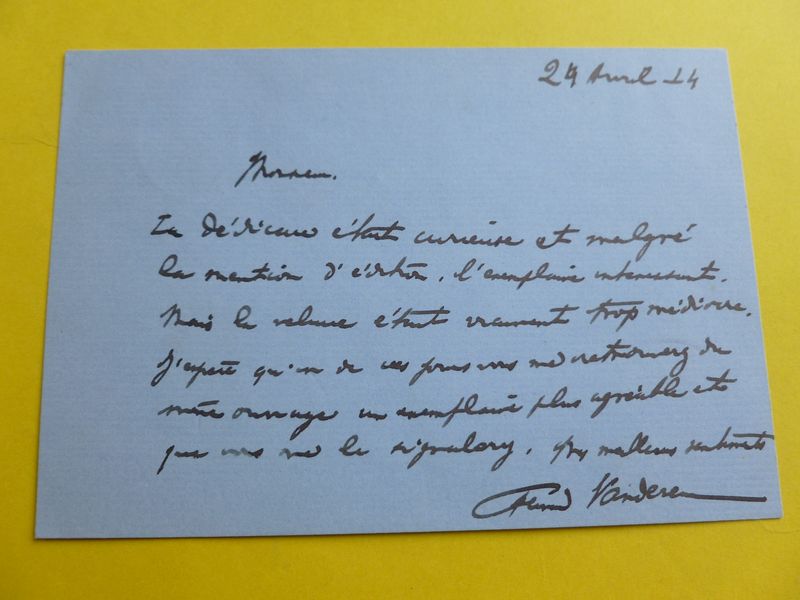 24 Avril 14
Monsieur.
La dédicace était curieuse et malgré
la mention d'édition, l'exemplaire intéressant.
Mais la reliure était vraiment trop médiocre.
J'espère qu'un de ces jours vous me retrouverez du
même ouvrage un exemplaire plus agréable et
que vous me le signalerez. Mes meilleurs sentiments
Fernand Vanderem